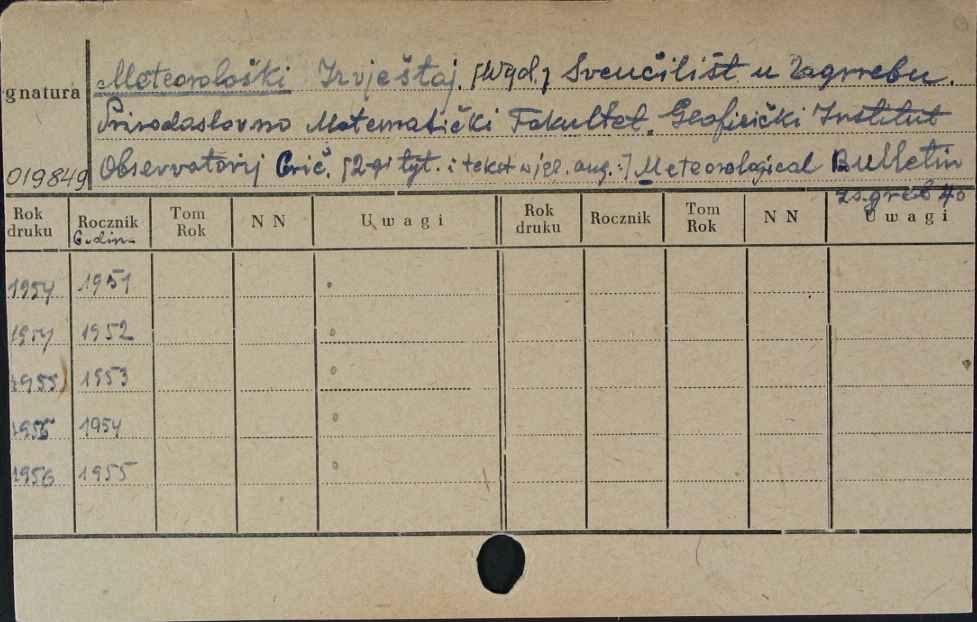 Meteorološki Izvještaj. [Wyd.] Sveučilišt u Zagrrebu.
gnatura
Prirodaslovno Matematički Fakultet. Geofizički Institut
019849
Observatorij Grič. [2-gi tyt. i tekst w jęz. ang.:] Meteorological Bulletin
Zagreb 4o
Rok druku Rocznik Tom Rok N N Uwagi Rok druku Rocznik Tom Rok N N Uwagi
Godina
1954 1951
1954 1952
1955 1953
1955 1954
1956 1955